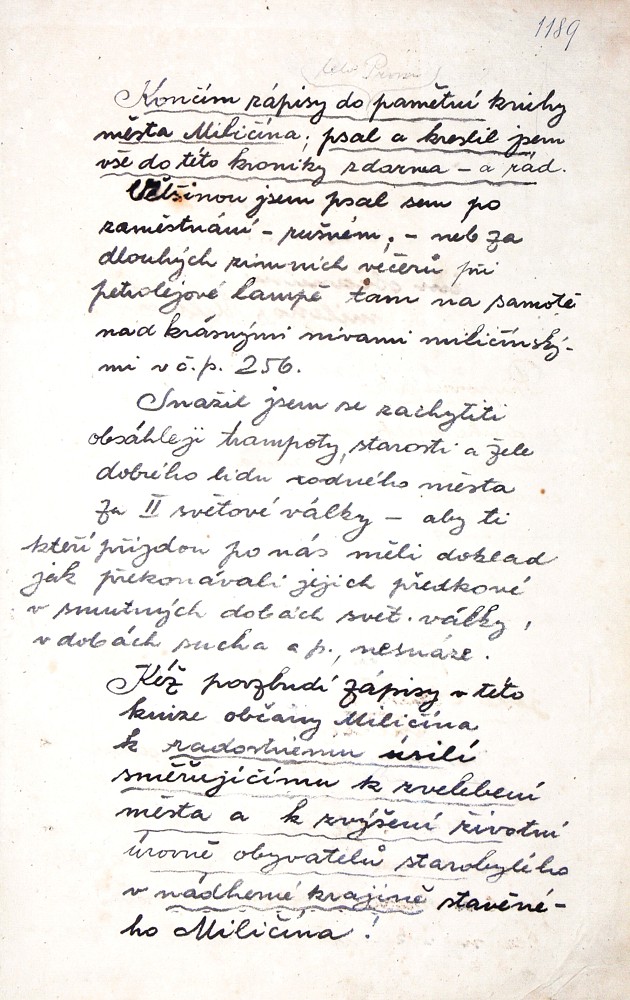 1189
Končím zápisy do pamětní knihy
města Miličína, psal a kreslil jsem
vše do této kroniky zdarma – a rád.
Většinou jsem psal sem po
zaměstnání – rušném, – neb za
dlouhých zimních večerů při
petrolejové lampě tam na samotě
nad krásnými nivami miličínský-
mi v č.p. 256.
Snažil jsem se zachytiti
obsáhleji trampoty, starosti a žele
dobrého lidu rodného města
za II světové války – aby ti
kteří přijdou po nás měli doklad
jak překonávali jejich předkové
v smutných dobách svět. války,
v dobách sucha a p., nesnáze.
Kéž povzbudí zápisy v této
knize občany Miličína
k radostnému úsilí
směřujícímu k zvelebení
města a k zvýšení životní
úrovně obyvatelů starobylého
v nádherné krajině stavěné-
ho Miličína!